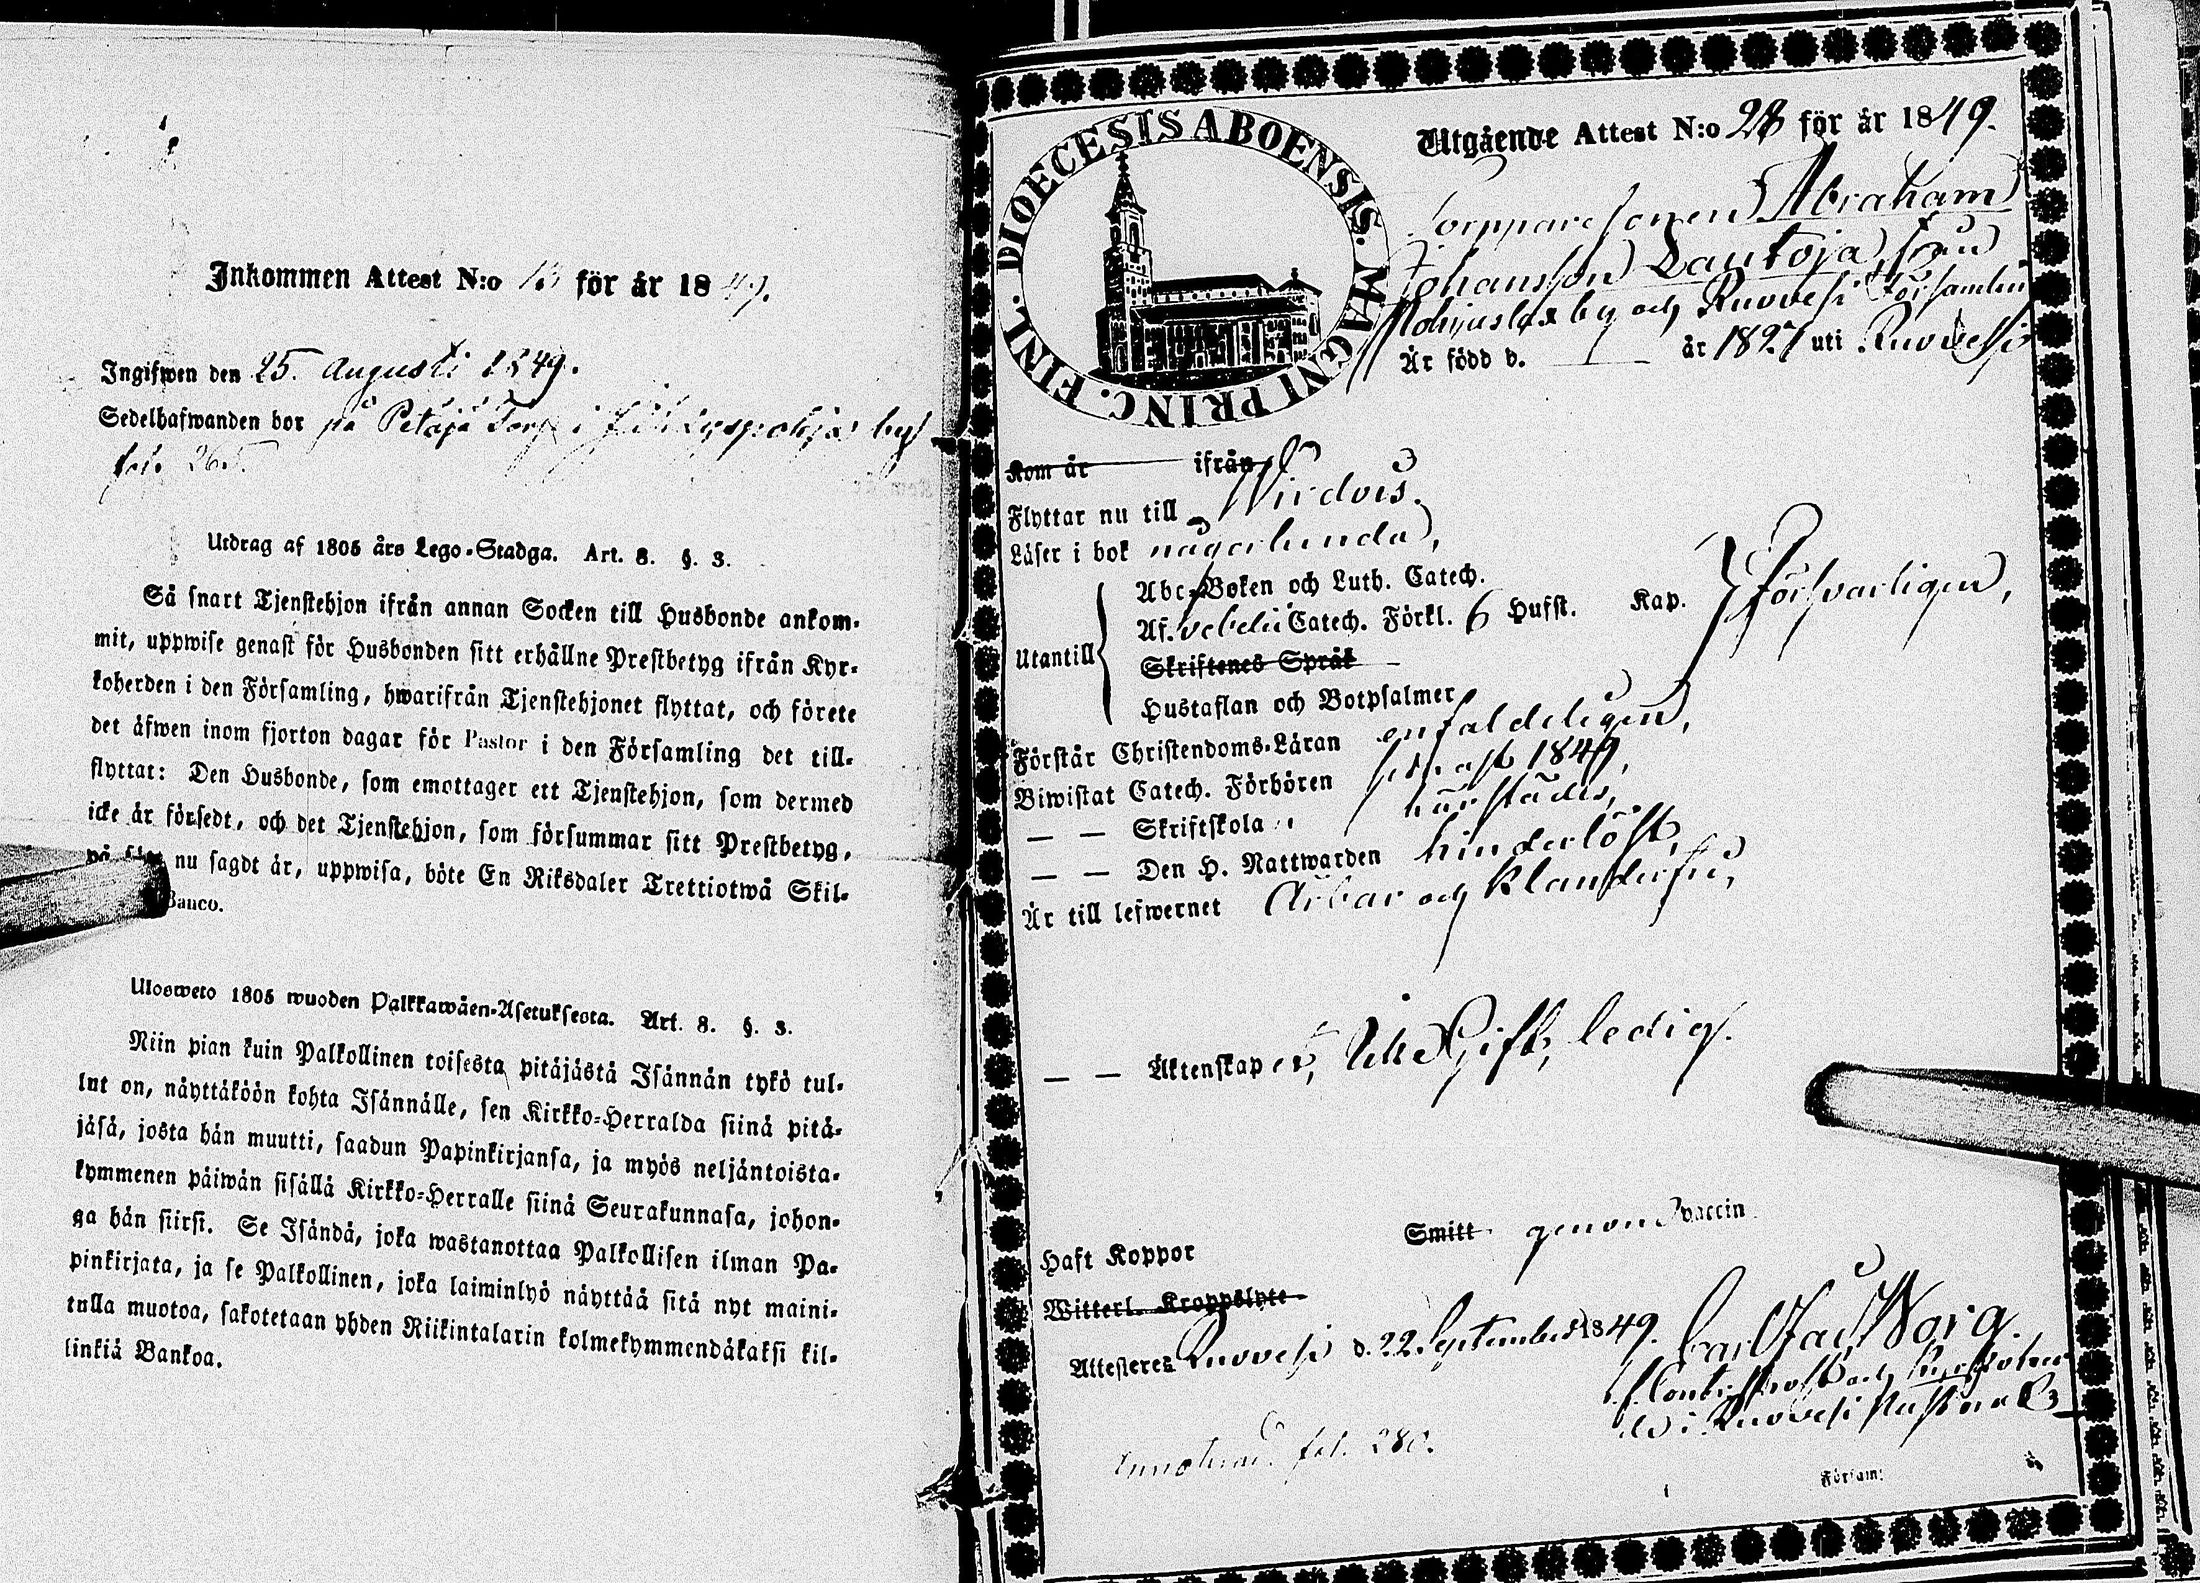 Inkommen Attest N:o 13 för år 1849.
Ingifwen den 25. Augusti 1849.
Sedelhafwanden bor på Petäjä Torp i by
fol. 265.
Utdrag af 1805 års Lego-Stadga. Art. 8. §. 3.
Så snart Tjenstehjon ifrån annan Socken till Husbonde ankom-
mit, uppwise genast för Husbonden sitt erhållne Prestbetyg ifrån Kyr-
koherden i den Församling, hwarifrån Tjenstehjonet flyttat, och förete
det äfwen inom fjorton dagar för Pastor i den Församling det till-
flyttat: Den Husbonde, som emottager ett Tjenstehjon, som dermed
icke är försedt, och det Tjenstehjon, som försummar sitt Prestbetyg,
på sätt nu sagdt är, uppwisa, böte En Riksdaler Trettiotwå Skil-
Banco.
Ulosweto 1805 wuoden Palkkawäen-Asetuksesta. Art. 8. §. 3.
Niin pian kuin Palkollinen toisesta pitäjästä Isännän tykö tul-
lut on, näyttäköön kohta Isännälle, sen Kirkko-Herralda siinä pitä-
jäsä, josta hän muutti, saadun Papinkirjansa, ja myös neljäntoista-
kymmenen päiwän sisällä Kirkko-Herralle siinä Seurakunnasa, johon-
ga hän siirsi. Se Isändä, joka wastanottaa Palkollisen ilman Pa-
pinkirjata, ja se Palkollinen, joka laiminlyö näyttää sitä nyt maini-
tulla muotoa, sakotetaan yhden Riikintalarin kolmekymmendäkaksi kil-
linkiä Bankoa.
DIOECESIS ABOENSIS. MAGNI PRINC. FINL.
Utgående Attest N:o 28 för år 1849.
Torpparesonen Abraham
Johansson Lautoja, från
by och Ruovesi Församling
Är född d. — år 1827 uti Ruovesi
Kom år ifrån
Flyttar nu till Wirdois.
Läser i bok någorlunda,
Utantill
Abc-Boken och Luth. Catech.
Af. Catech. Förkl. 6 Hufst. Kap. Försvarligen,
Skriftenes Språk
Hustaflan och Botpsalmer
Förstår Christendoms-Läran enfaldeligen,
Biwistat Catech. Förhören sednast 1849,
— — Skriftskola härstädes,
— — Den H. Nattwarden hinderlöst,
Är till lefwernet Ärbar och klanderfri,
— — Äktenskapet, Till Gifte, ledig.
Haft Koppor Smitt genom vaccin
Witterl. Kroppslyte
Attesteras Ruovesi d. 22 September 1849. Carl Gust. Worg.
Contr. Prost och Kyrkoher-
de i Ruovesi
fol. 280.
Försam: